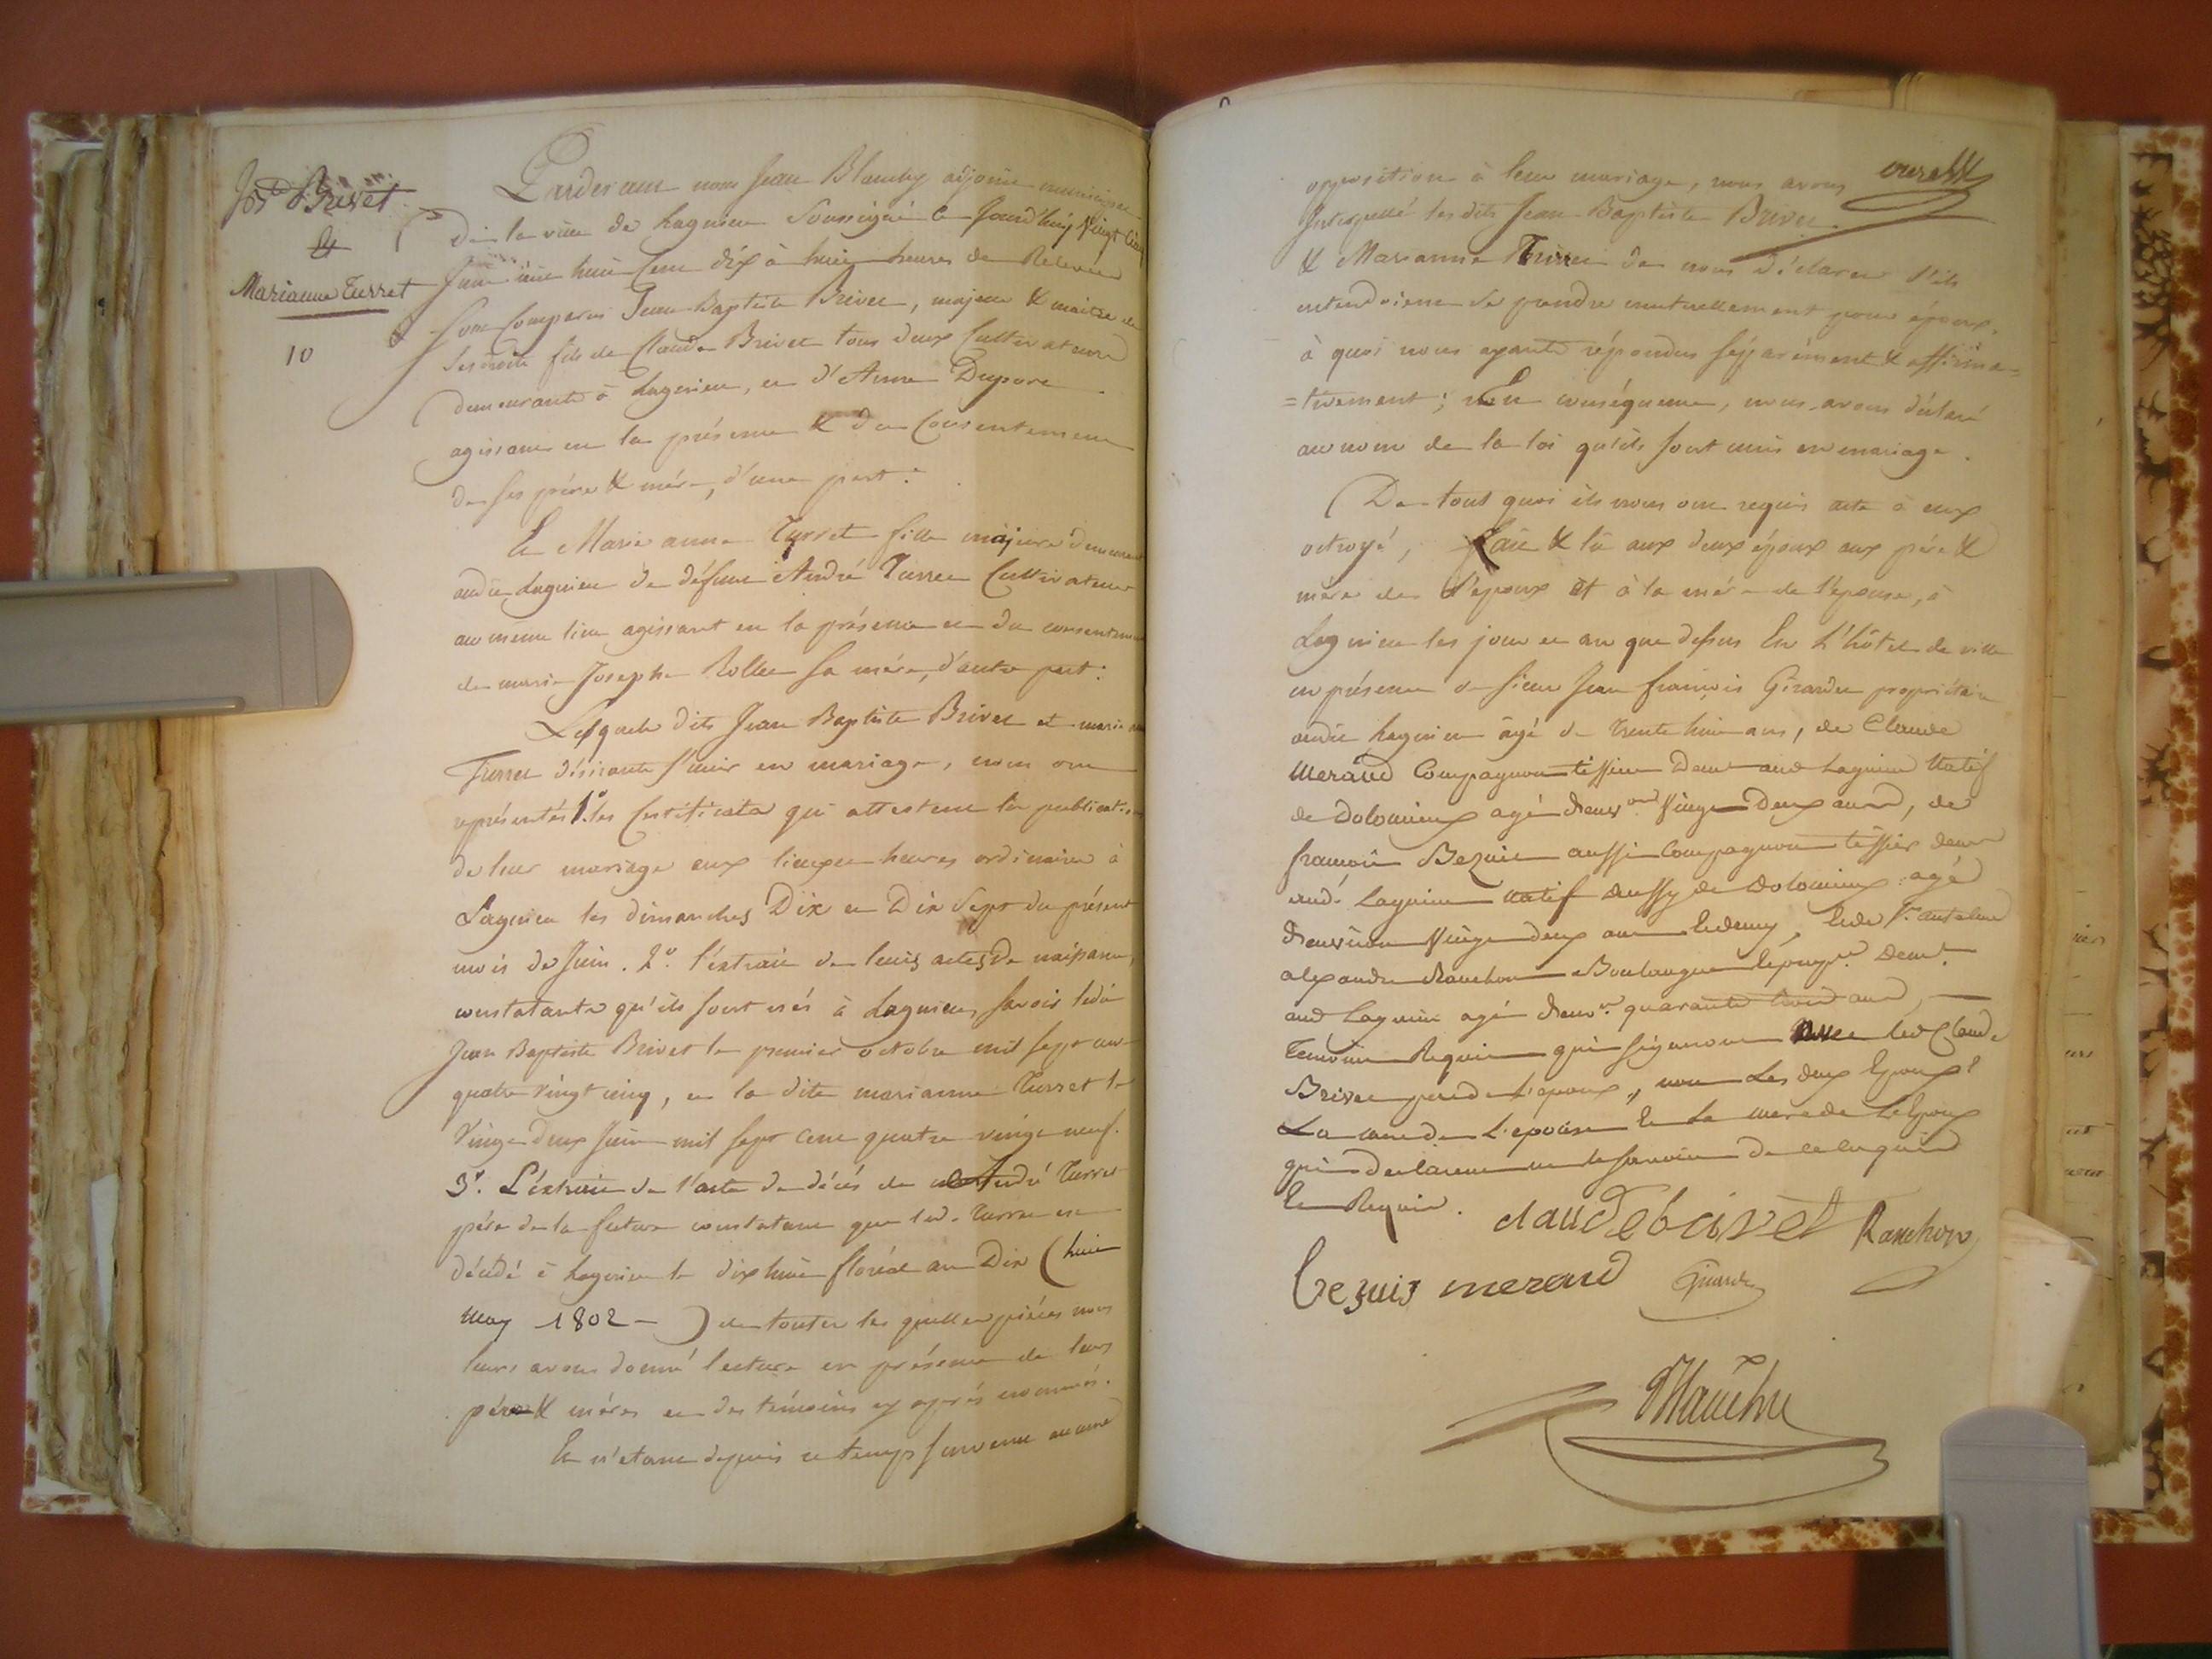 Jos Brivet
&
Marianne Turret
10
Pardevant nous Jean Blanchy adjoint municipal
De la ville de Lagnieu Soussigné le Jourd'huy Vingt cinq
Juin mil huit Cent dix à huit heures de Relevée
Sont Comparus Jean Baptiste Brivet, majeur & maitre de
ses droits fils de Claude Brivet tous deux Cultivateurs
demeurants à Lagnieu, et d'Anne Dupore
agissant en la présence & du Consentement
de ses père & mère, d'une part :
Et Marie anne Turret fille majeure demeurant
audit Lagnieu de défunt André Turret Cultivateur
au meme lieu agissant en la présence et du consentement
de marie Josephe Rollet sa mère, d'autre part :
Lesquels dits Jean Baptiste Brivet et marie anne
Turret désirants s'unir en mariage, nous ont
représentés 1.° les Certificats qui attestent la publication
de leur mariage aux lieux et heures ordinaires à
Lagnieu les dimanches Dix et Dix Sept du présent
mois de Juin. 2.° l'extrait de leurs actes De naissance,
constatants qu'ils sont nés à Lagnieu, savoir ledit
Jean Baptiste Brivet le premier octobre mil sept cent
quatre vingt cinq, et la dite marianne Turret le
Vingt Deux Juin mil sept cent quatre vingt neuf.
3.° L'extrait de l'acte de décès de André Turret
père de la future constatant que led. Turret est
décédé à Lagnieu le dix huit floréal an Dix (huit
May 1802 - ) de toutes les quelles pièces nous
leurs avons donné lecture en présence de leurs
père & mères et des témoins cy après nommés.
Et n'etant depuis ce temps survenu aucune
opposition à leur mariage, nous avons
Interpellé les dits Jean Baptiste Brivet
& Marianne Turret de nous déclarer s'ils
entendoient se prendre mutuellement pour époux,
à quoi nous ayants répondus séparément & affirma=
=tivement ; En conséquence, nous avons déclaré
au nom de la loi qu'ils sont unis en mariage.
De tout quoi ils nous ont requis acte à eux
octroyé, fait & lû aux deux époux aux père &
mère de l'époux et à la mère de l'épouse, à
Lagnieu les jour et an que dessus En l'hôtel de ville
en présence de sieur Jean françois Girardet propriétaire
audit Lagnieu âgé de trente huit ans, de Claude
Meraud Compagnon tissier Demt aud Lagnieu Natif
de Dolomieux agé denvon Vingt Deux ans, de
françois Bezuis aussi Compagnon tissier demt
aud. Lagnieu natif aussy de Dolomieux agé
denviron Vingt deux ans et demy, et de Sr. antelme
alexandre Ranchon Boulanger Demt.
aud Lagnieu agé denvn. quarante trois ans,
Temoins Requis qui signeront avec led Claude
Brivet pere de L'epoux, non Les deux Epoux
La mere de L'epouse et La mere de L'Epoux
qui declarent ne le savoir de ce enquis
et Requis.
claudebrivet Ranchon
bezuis meraud Girardet
Blanchy